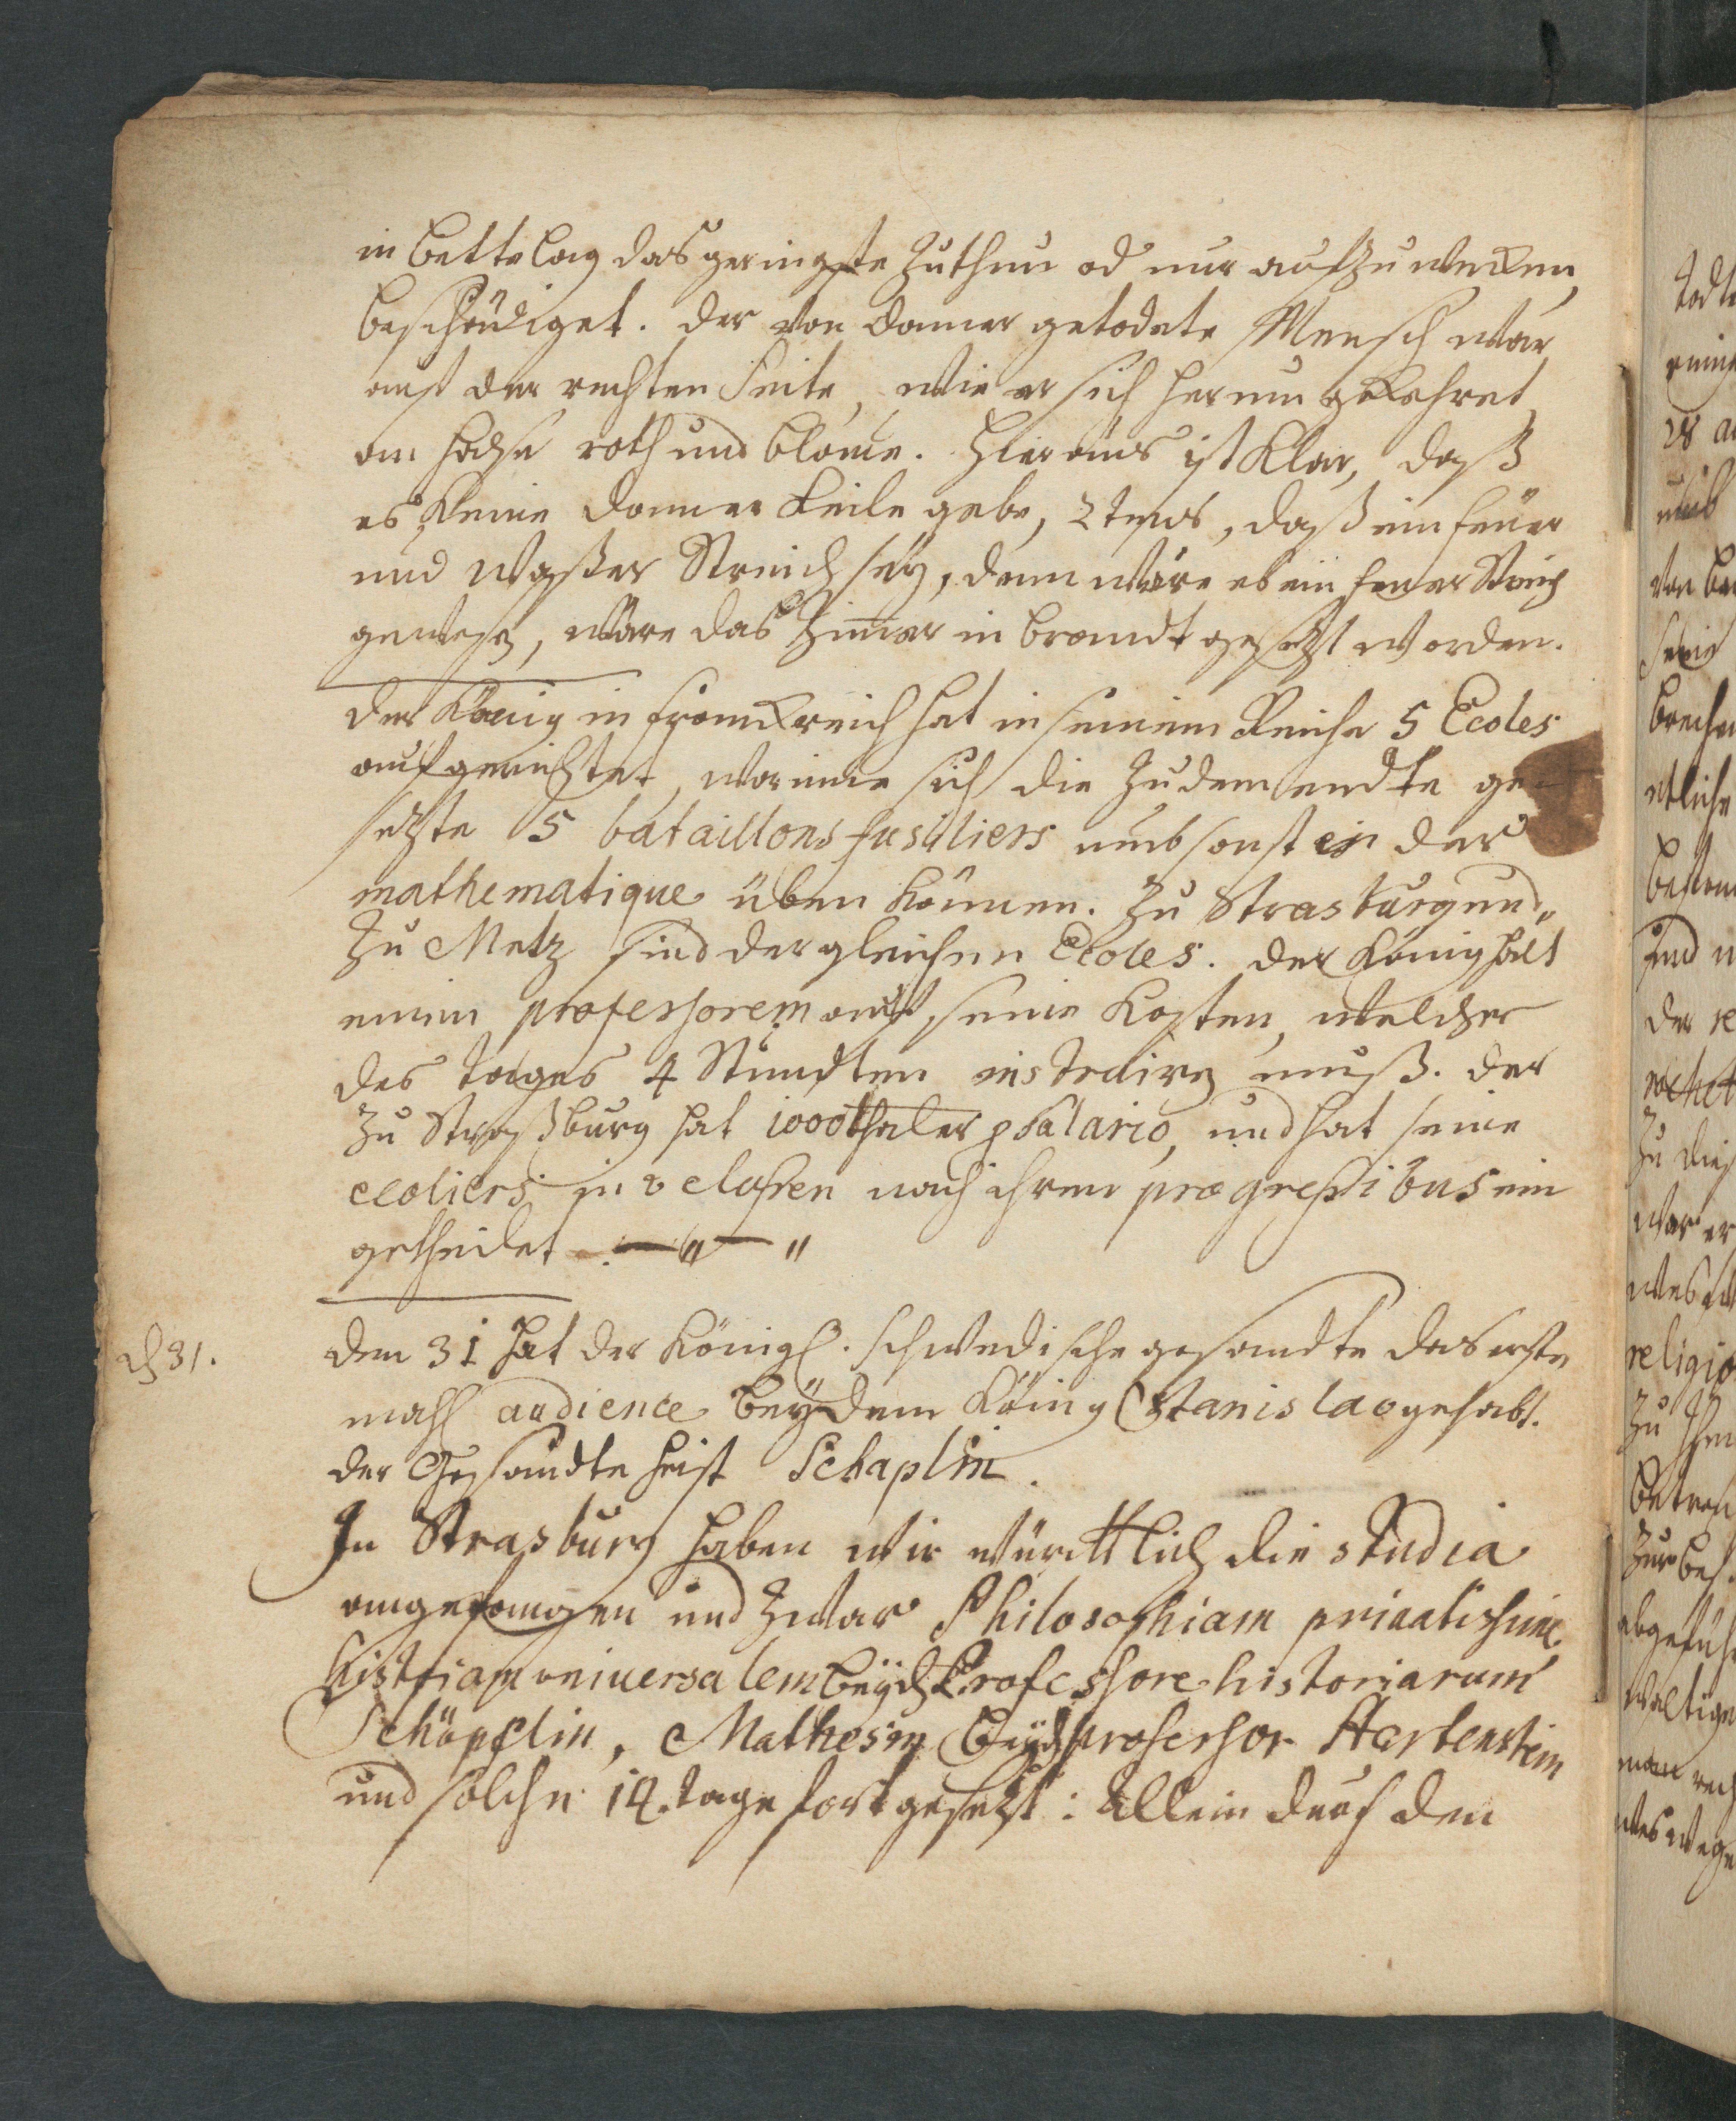 in bette lag das geringste zuthun od nur aufzuwecken,
beschädiget. der von donner getodete Mensch war
auf der rechten Seite, wie er sich herum gekehret,
am halse roth und blaue. Hieraus ist klar, daß
es keine donner keile gebe, 2tens, daß ein feuer
und waßer Streich sey, denn wäre es ein feuer Streich
gewesen, wäre das Zimer in brandt gesetzt worden.
der König in franckreich hat in seinem Reiche 5 Ecoles
aufgerichtet, worinne sich die zu dem endte ge
setzte 5 bataillons fusiliers umbsonst in der
mathematique üben können. Zu Strasburg und„
zu Metz sind dergleichen Ecoles. der König hält
einen professorem auf seine Kosten, welcher
des tages 4 Stundten instruiren muß. der
zu Straßburg hat 1000 thaler salario, und hat seine
ecoliers in classen nach ihren progressibus ein
getheilet.
d 31.
den 31 hat der Königl. Schwedische gesandte das erste
mahl audience bey dem König Stanislao gehabt.
der Gesandte heist Schaplin.
In Strasburg haben wir würcklich die studia
angefangen und zwar Philosophiam privatissime
historiam universalem beyd Professore historiarum
Schöpflin, Mathesin beyd professor Hertenstein
und solche 14. tage fort gesetzt: Allein durch den